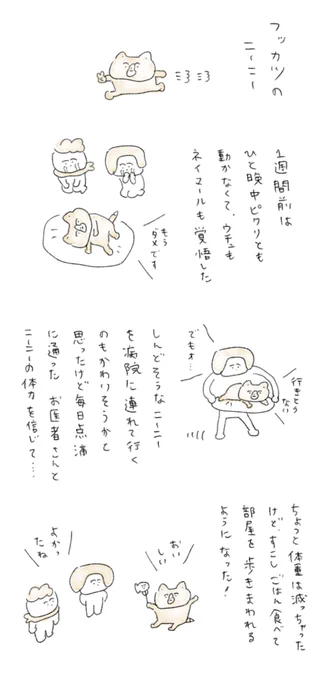 フッカツの
ニーニー
1週間前は
ひと晩中ピクリとも
動かなくて、ウチュも
ネイマールも覚悟した
もう
ダメです
でもォ…
行きとう
ない
しんどそうなニーニー
を病院に連れて行く
のもかわいそうかと
思ったけど毎日点滴
に通った お医者さんと
ニーニーの体力を信じて….
ちょっと体重は減っちゃった
けど、すこしごはん食べて
部屋を歩きまわれる
ようになった!
おい
しい
よかっ
たね